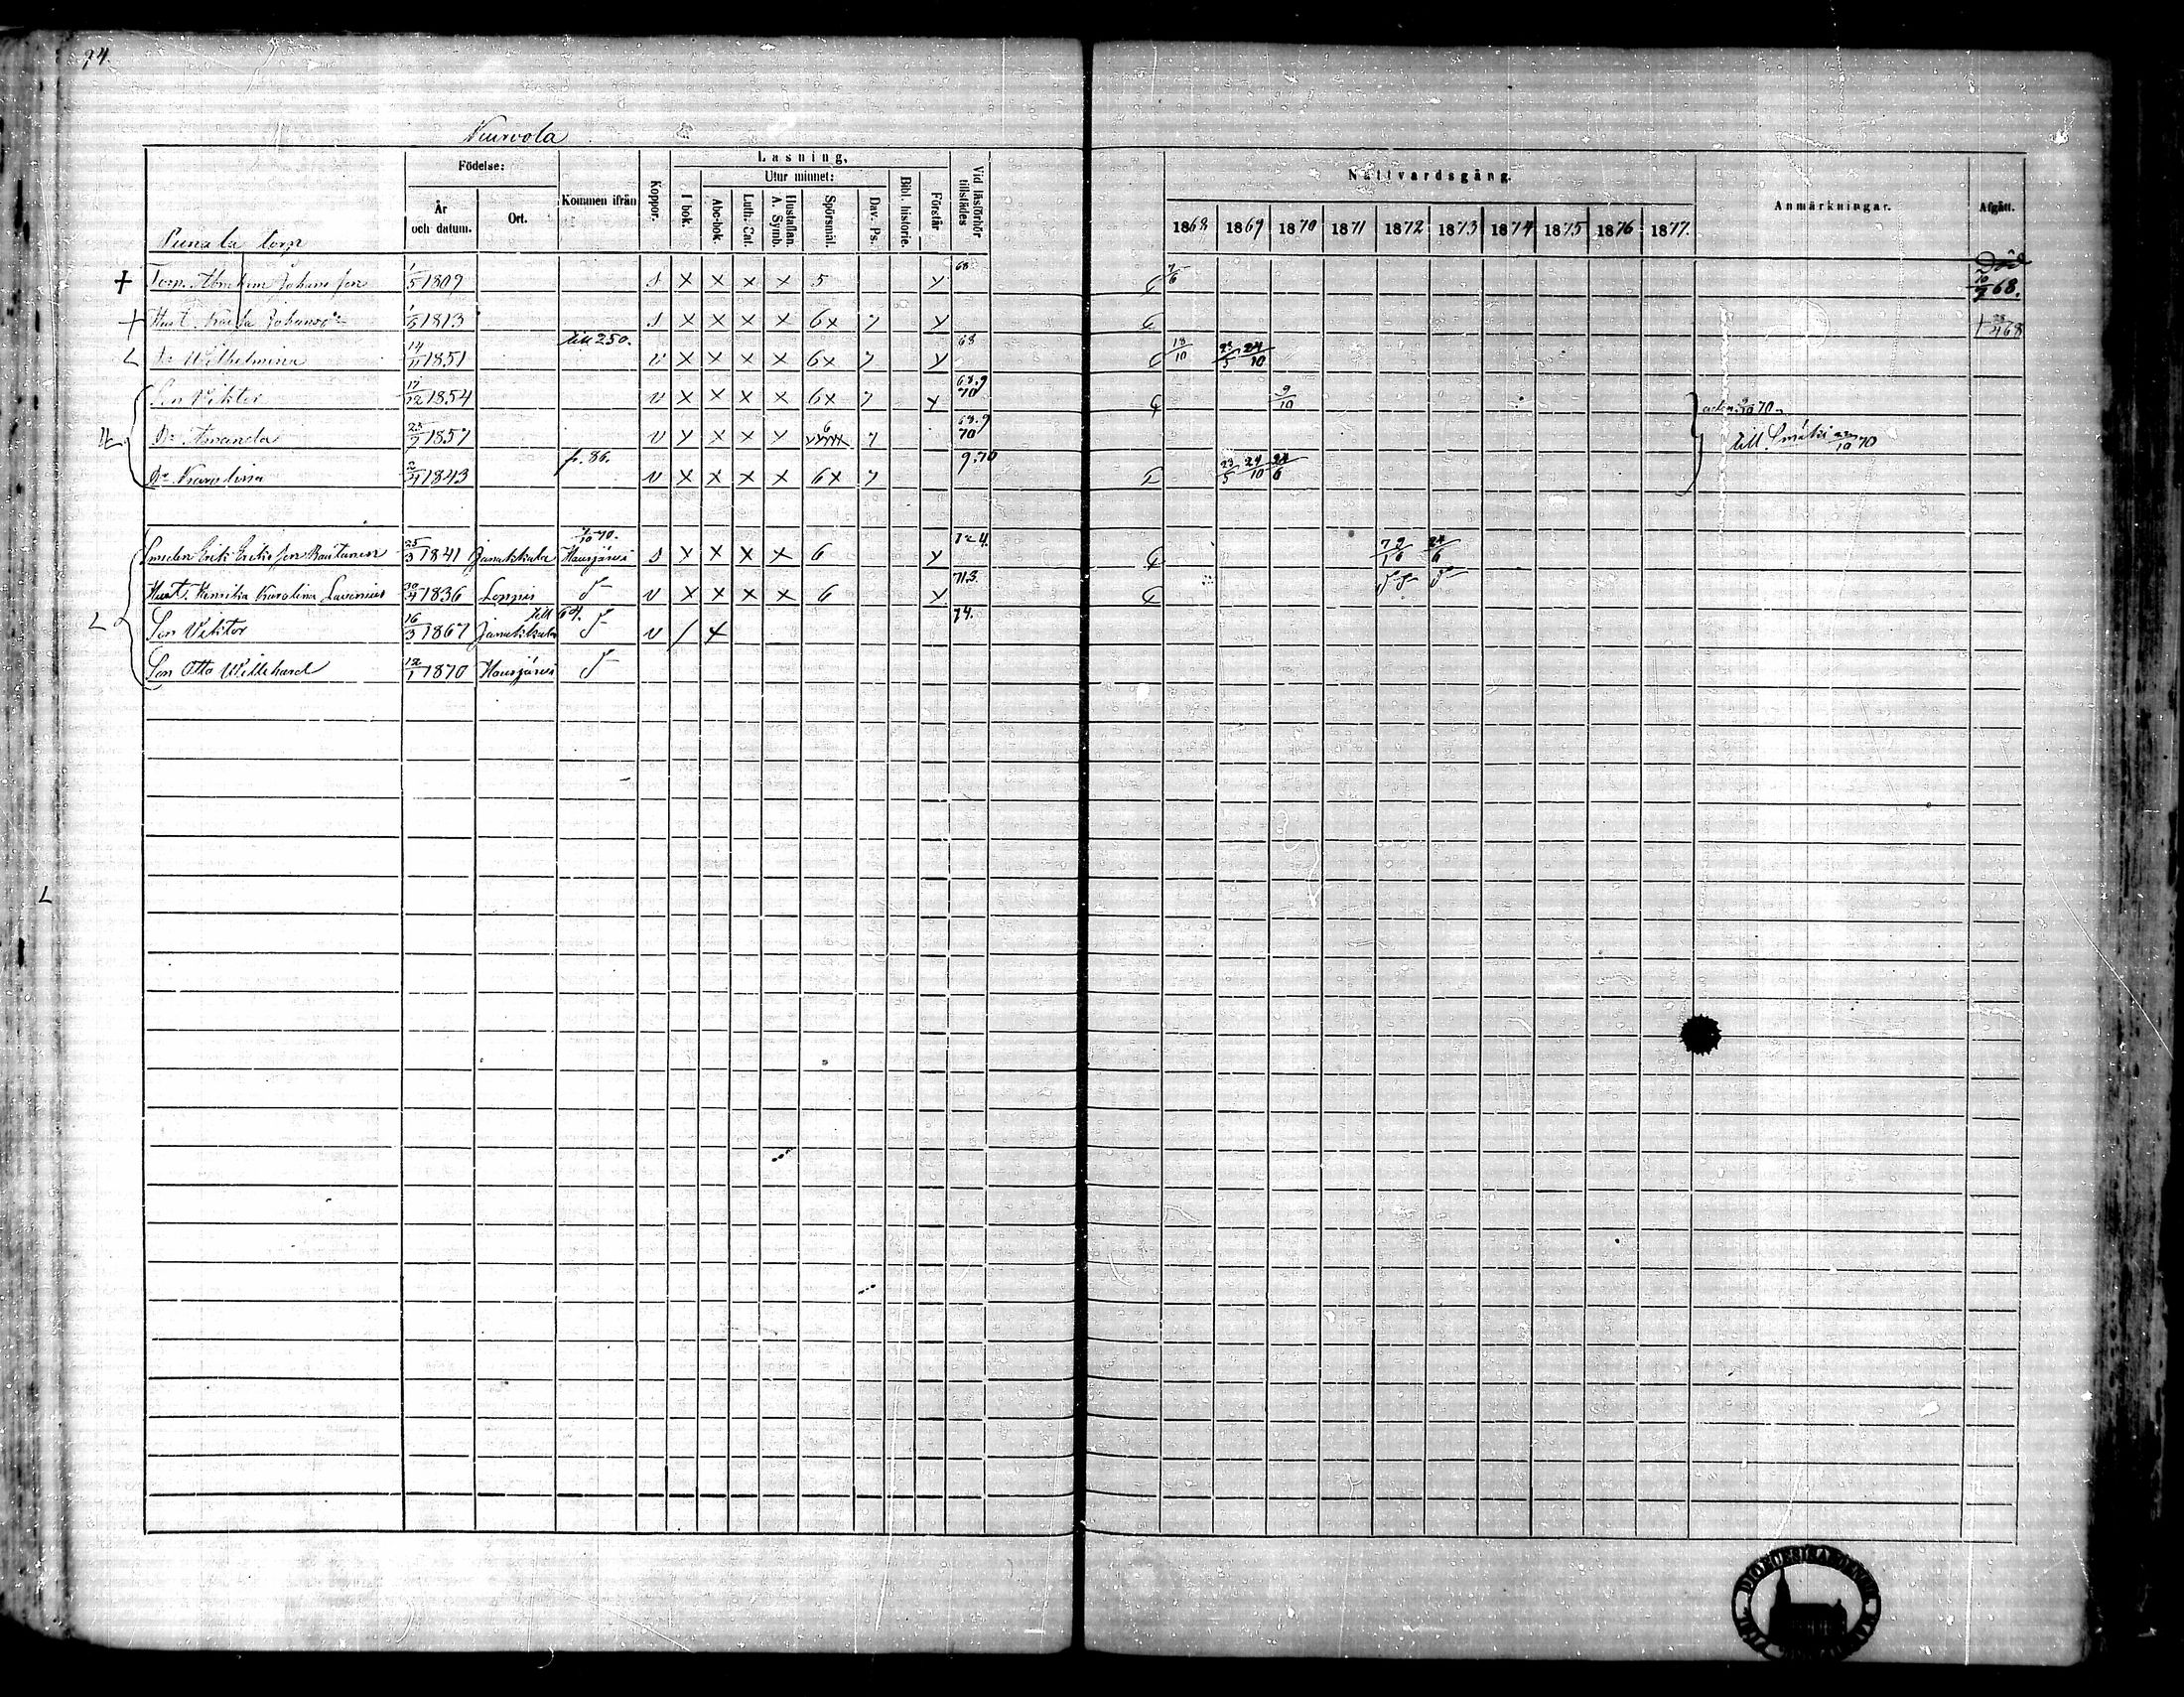 94.
Nurvola
Födelse:
År och datum.
Ort.
Kommen ifrån
Koppor.
Läsning,
I bok.
Utur minnet:
Abc-bok.
Luth. Cat.
Hustaflan. A. Symb.
Spörsmål.
Dav. Ps.
Bibl. historie.
Förstår
Vid läsförhör tillstädes
Nattvardsgång.
1868 1869 1870 1871 1872 1873 1874 1875 1876 1877.
Anmärkningar.
Afgått.
Punala torp
Torp. Abraham Johans son 1/5 1809 s x x x x 5 y 68 7/6 Död 68.
Hust. Johansdr 1813 s x x x x 6x 7 y 68
Dr Wilhelmina 14/11 1851 till 250. v x x x x 6x 7 y 68 18/10 23/5 24/10
Son Viktor 17/12 1854 v x x x x 6x 7 y 68.9 70 9/10 70
Dr Amanda 1857 v y x x y 6 7 68.9 70 till 70
Dr Karolina 1843 fr. 86. v x x x x 6x 7 9.70 23/5 24/10 24/6
Smeden Erik Eriks son Rautanen 25/3 1841 Janakkala 70. Hausjärvi s x x x x 6 y 72 4. 24/6
Hust. Henrika Karolina 30/4 1836 Loppis v x x x x 6 y 71 3.
Son Viktor 16/3 1867 Janakkala till 64. v / x 74.
Son Otto Willehard 12/1 1870 Hausjärvi